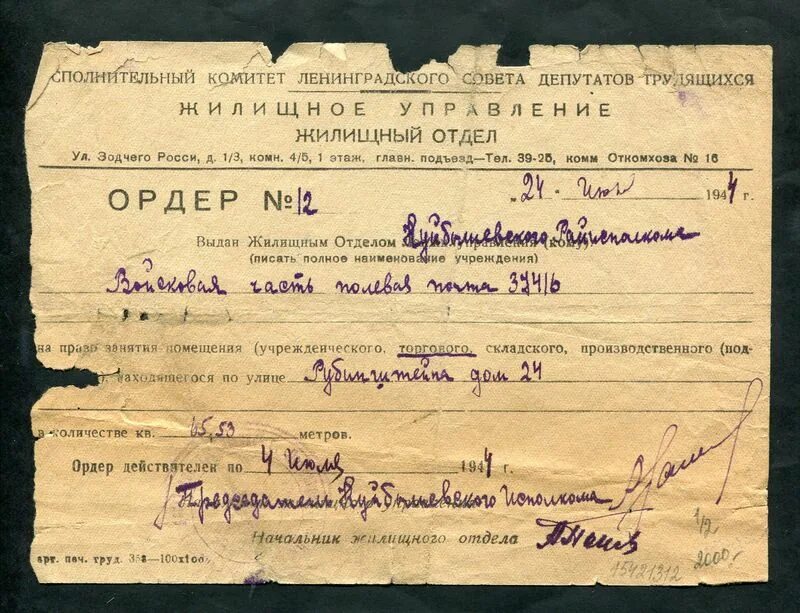 СПОЛНИТЕЛЬНЫЙ КОМИТЕТ ЛЕНИНГРАДСКОГО СОВЕТА ДЕПУТАТОВ ТРУДЯЩИХСЯ
ЖИЛИЩНОЕ УПРАВЛЕНИЕ
ЖИЛИЩНЫЙ ОТДЕЛ
Ул. Зодчего Росси, д. 1/3, комн. 4/5, 1 этаж, главн. подъезд—Тел. 39-25, комм Откомхоза № 16
ОРДЕР №12
„24 - Июня 1944 г.
Выдан Жилищным Отделом Куйбышевского Райисполкома (кому)
(писать полное наименование учреждения)
Войсковая часть полевая почта 37416
на право занятия помещения (учрежденического, торгового, складского, производственного (под-
), находящегося по улице Рубинштейна дом 24
в количестве кв. 65,53 метров.
Ордер действителен по 4 Июля 1944 г.
Председатель Куйбышевского Исполкома
Начальник жилищного отдела
1/2
2000-
15421312
арт. печ. труд. 358—100х100